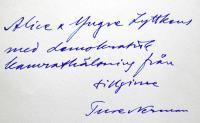 Alice & Yngve Lyttkens
med demokratisk
kamrathälsning från
tillgivne
Ture Nerman